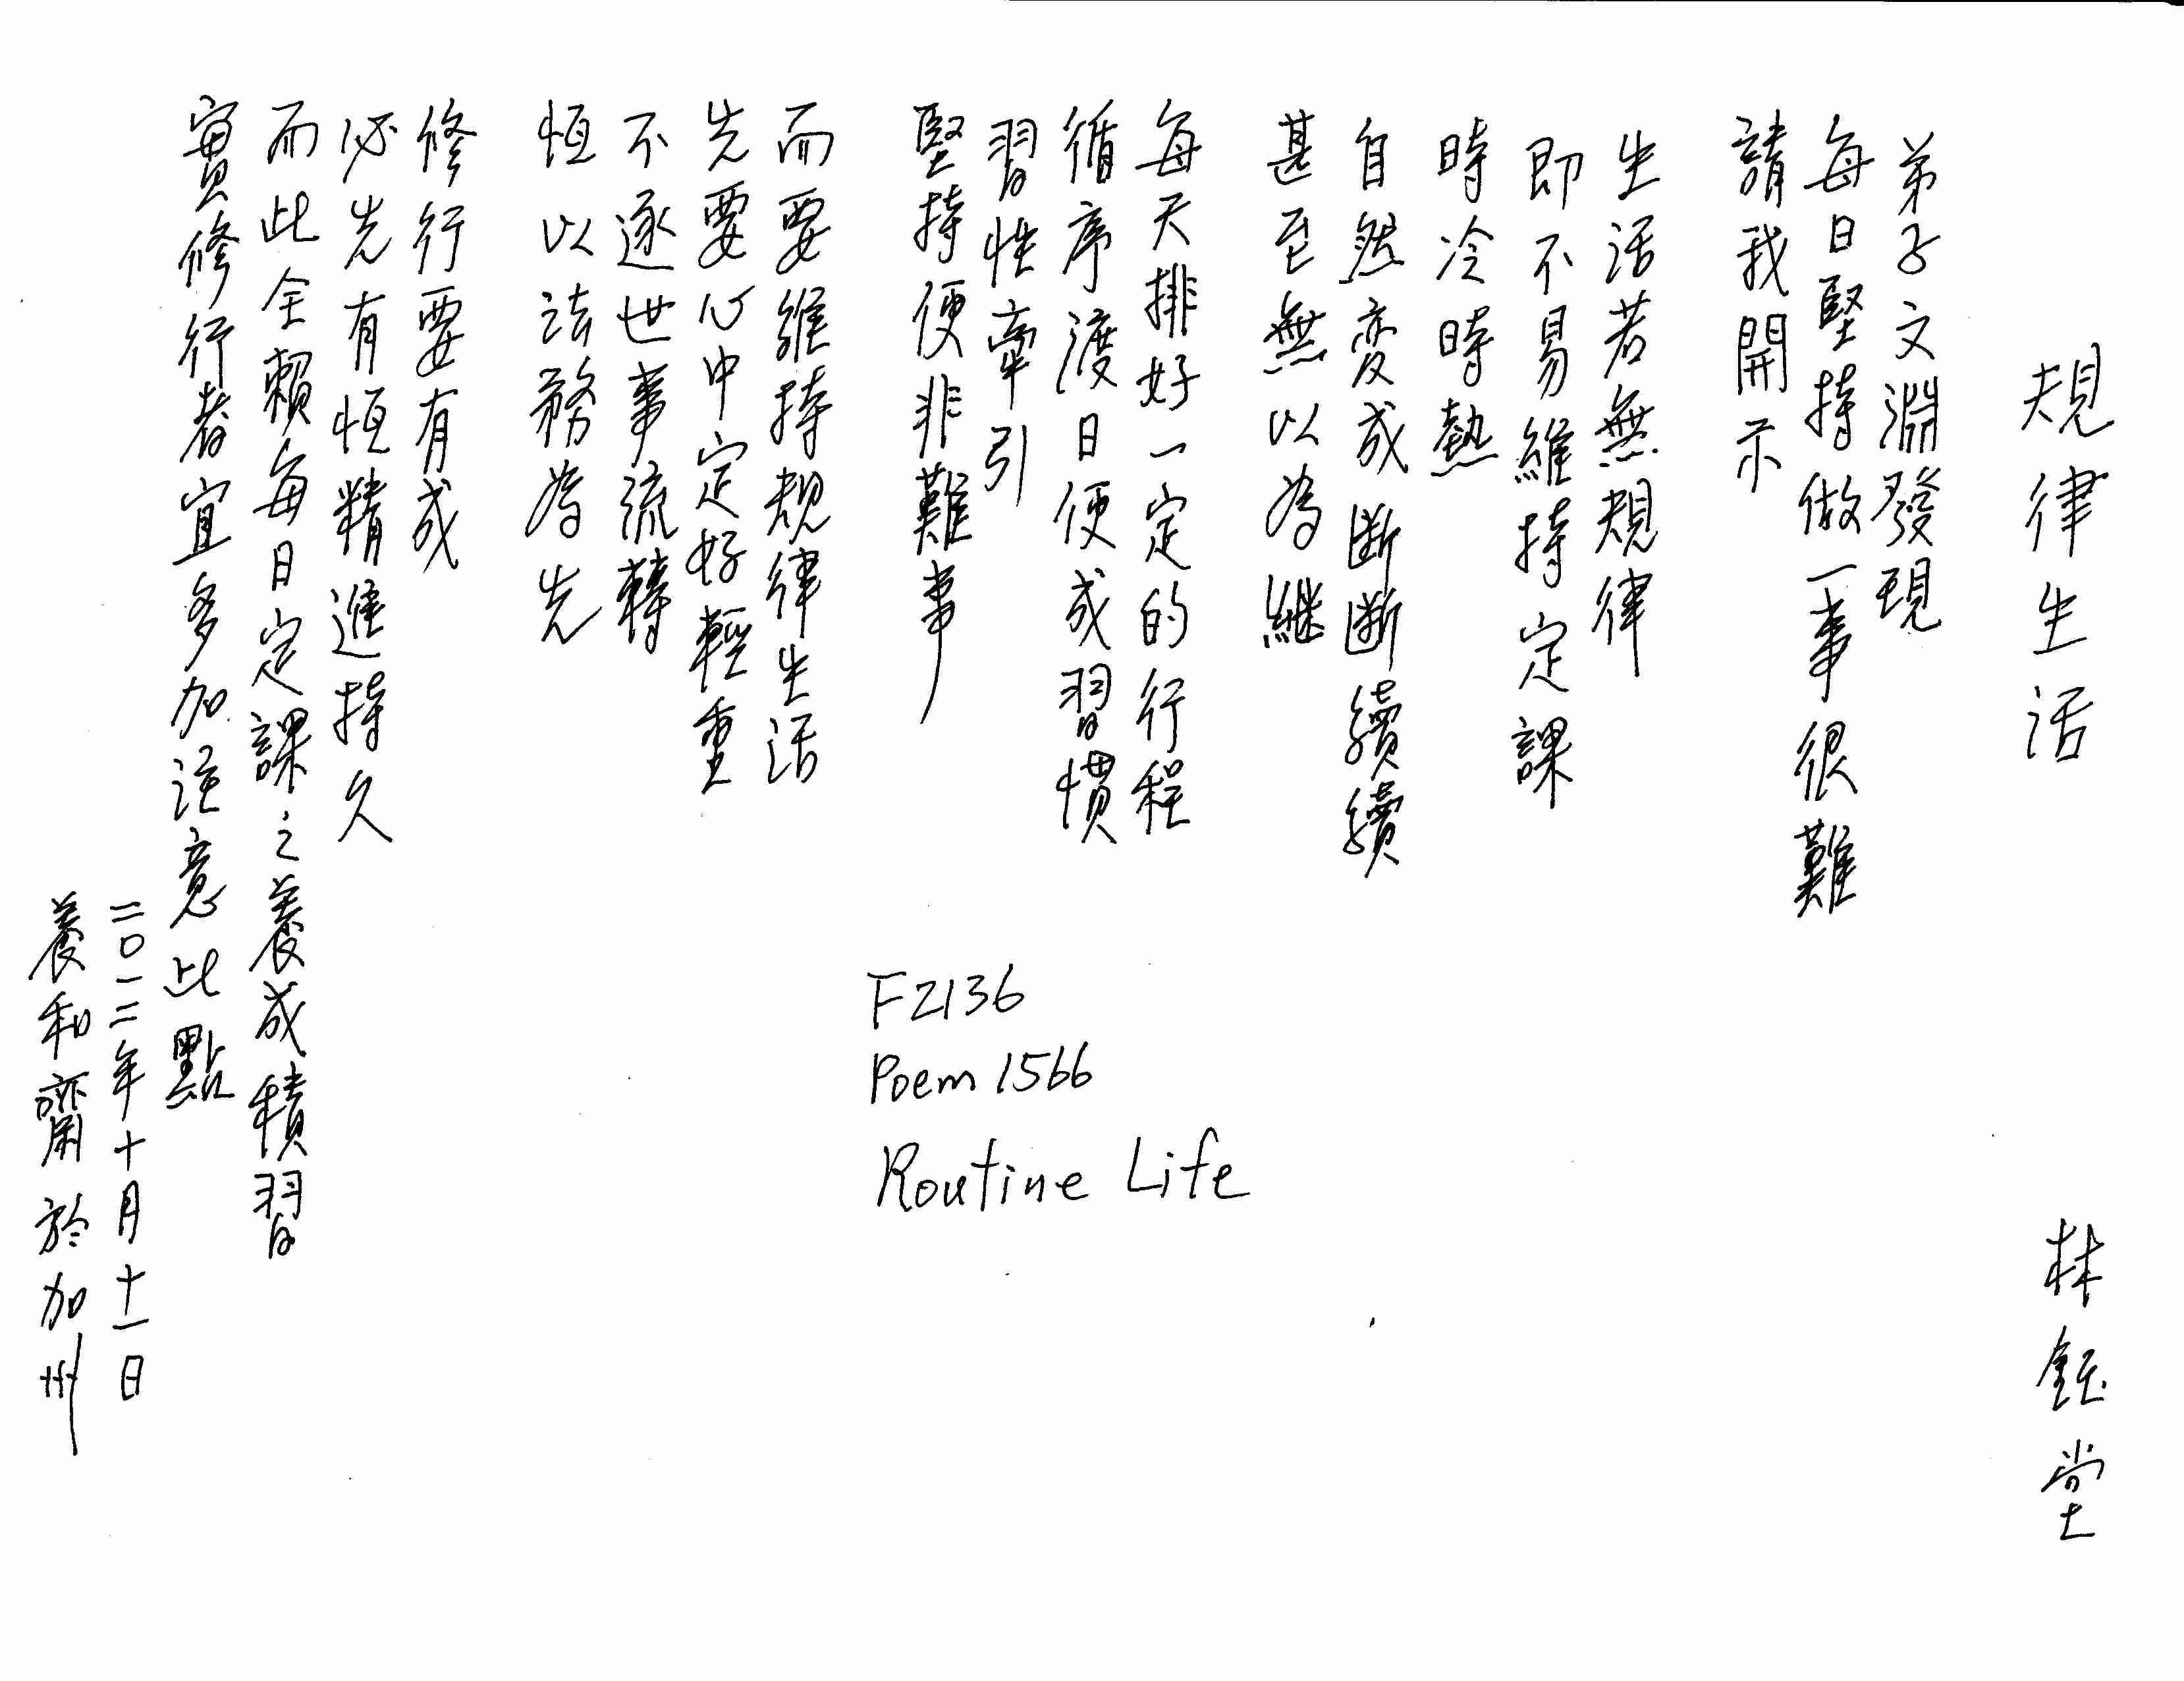 規律生活
林鈺堂
弟子文淵發現
每日堅持做一事很難
請我開示
生活若無規律
即不易維持定課
時冷時熱
自然変成断断續續
甚至無以為継
每天排好一定的行程
循序渡日便成習慣
習性牽引
堅持便非難事
而要維持規律生活
先要心中定好輕重
不逐世事流轉
恒以法務為先
修行要有成
必先有恒精進持久
而此全賴每日定課之養成積習
實修行者宜多加注意此點
二〇一二年十月十一日
養和齋於加州
F2136
Poem 1566
Routine Life